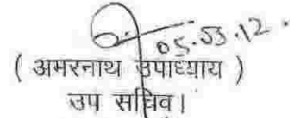 05.53.12.
( अमरनाथ उपाध्याय )
उप सचिव।